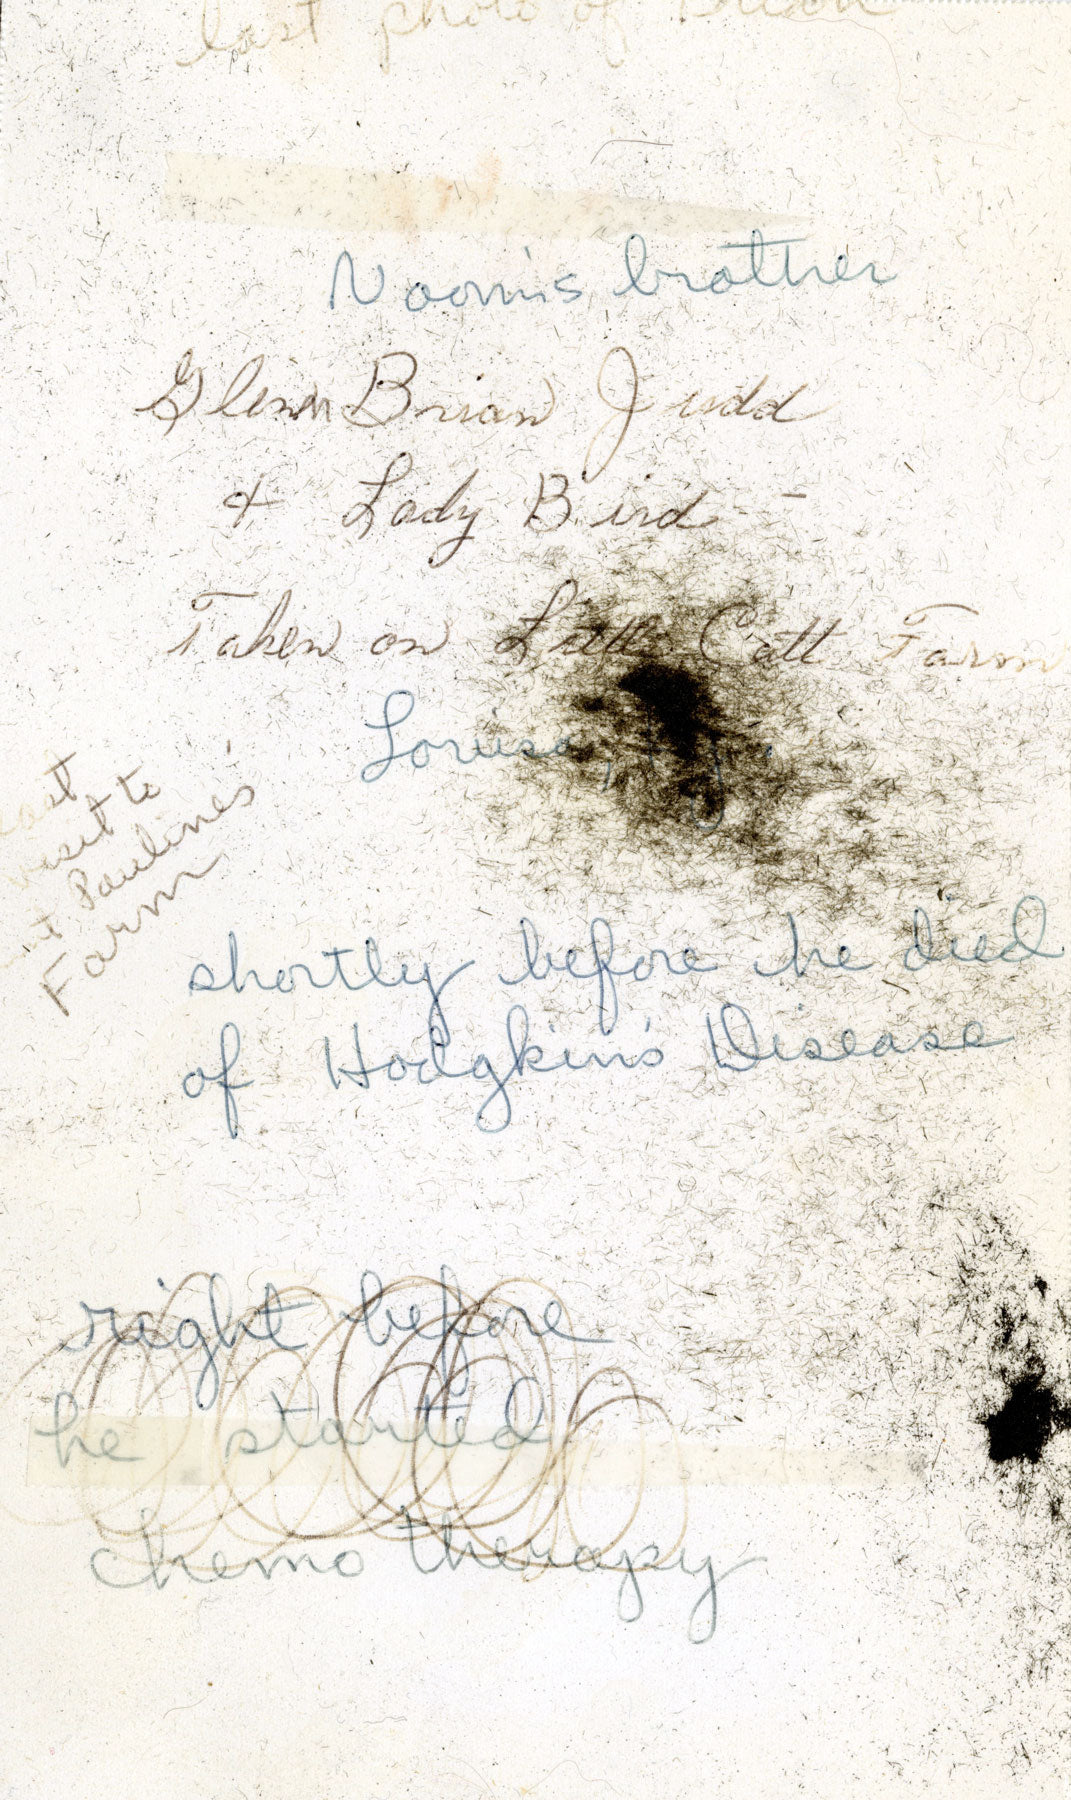 last photo of Brian
Naomi's brother
Glenn Brian Judd
& Lady Bird -
Taken on Little Catt Farm
Louisa, Ky.
last
visit to
at Pauline's
Farm
shortly before he died
of Hodgkin's Disease
right before
he started
chemo therapy